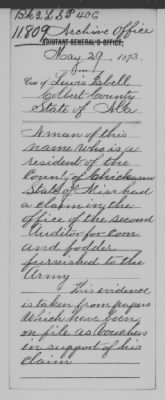 Bk 2 L & P 406
11809 Archive Office
ADJUTANT GENERAL'S OFFICE,
May 29 1873
Case of Lewis Isbell
Colbert County
State of Ala
A man of this
name who is a
resident of the
County of Chickasaw
State of Miss had
a claim in the
office of the second
Auditor for corn
and fodder
furnished to the
Army
This evidence
is taken from papers
which have been
on file as vouchers
in support of his
claim